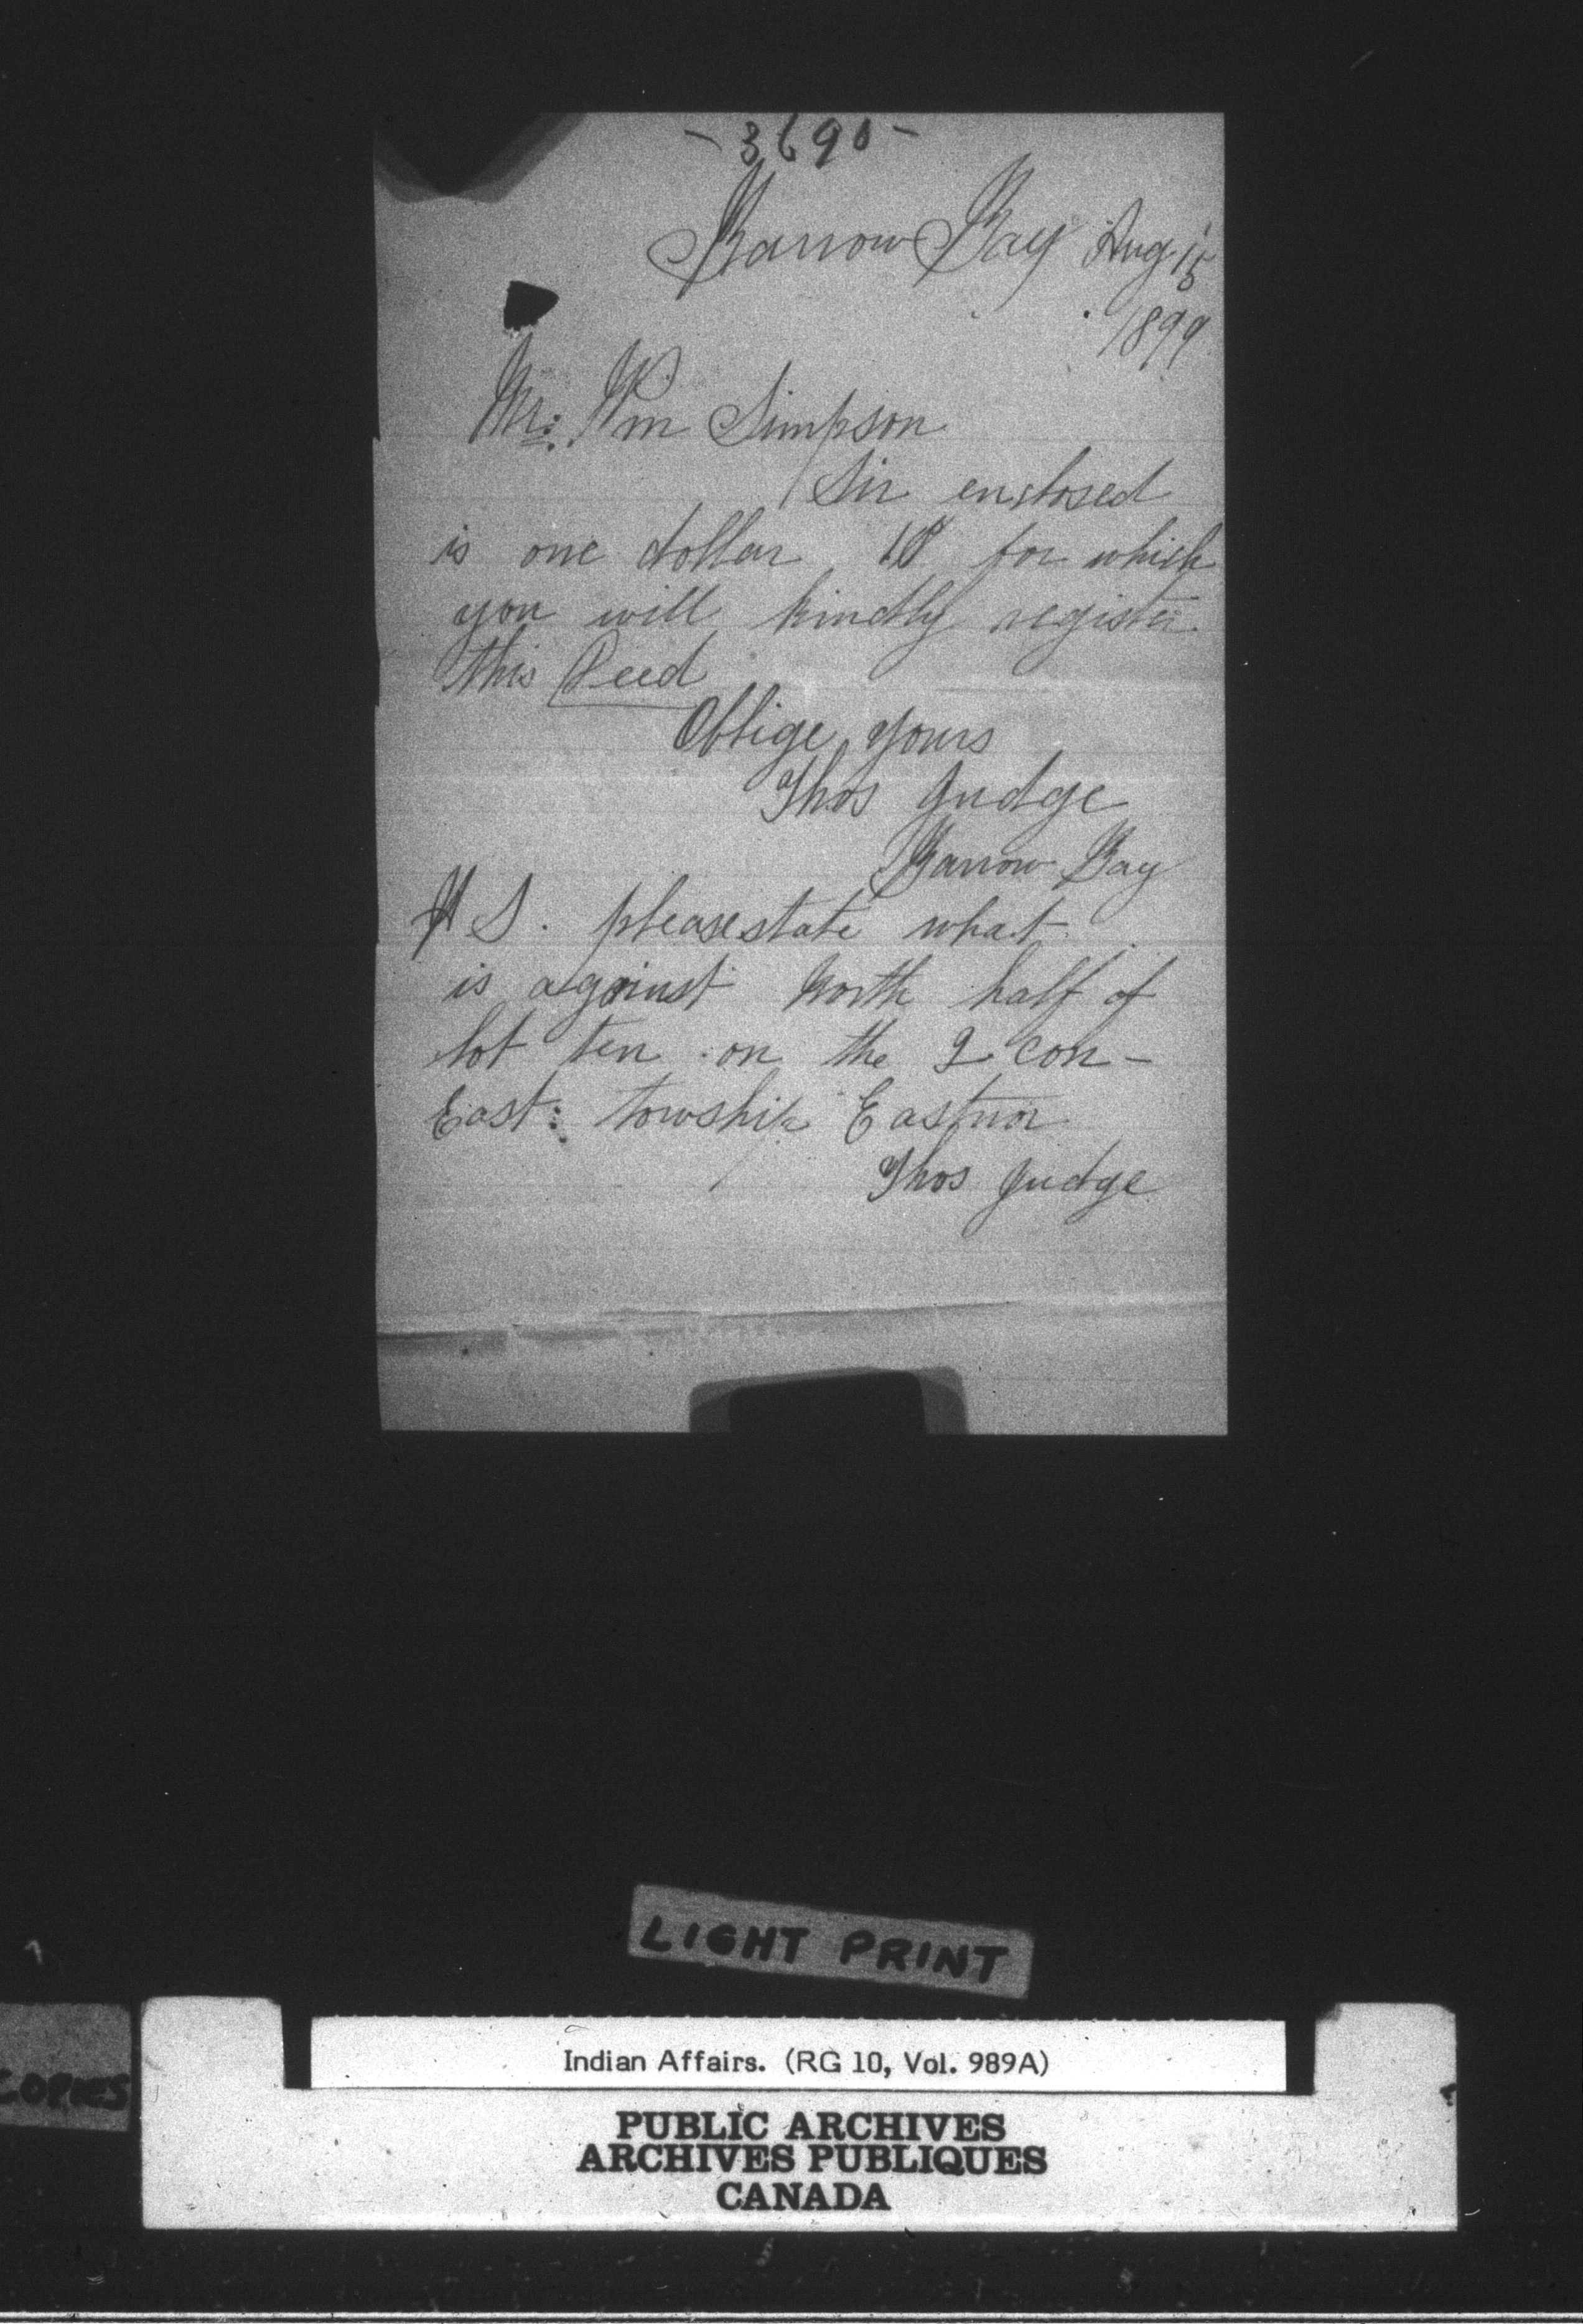 - 3690 -
Barrow Bay Aug 15
1899
Mr: Wm Simpson
Sir enclosed
is one dollar for which
you will kindly register
this Deed
Oblige yours
Thos Judge
Barrow Bay
P S. please state what
is against North half of
lot ten on the 2 con -
East: towship Eastnor
Thos Judge
LIGHT PRINT
COPIES
Indian Affairs. (RG 10, Vol. 989A)
PUBLIC ARCHIVES
ARCHIVES PUBLIQUES
CANADA